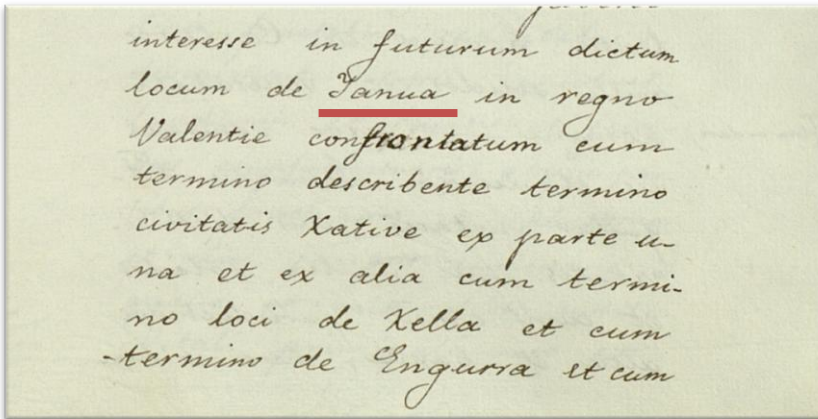 interesse in futurum dictum
locum de Tanua in regno
Valentie confrontatum cum
termino describente termino
civitatis Xative ex parte u-
na et ex alia cum termi-
no loci de Xella et cum
-termino de Engurra et cum